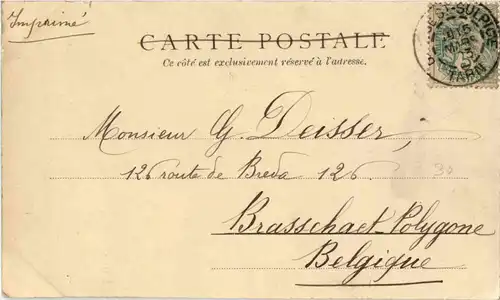 Imprimé
CARTE POSTALE
Ce côté est exclusivement réservé à l'adresse.
ST-SULPICE
TARN
Monsieur G. Deisser,
126 route de Breda 126.
30
Brasschaet-Polygone
Belgique